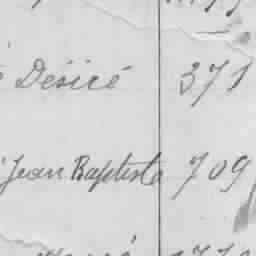 Désiré 371
Jean Baptiste 709